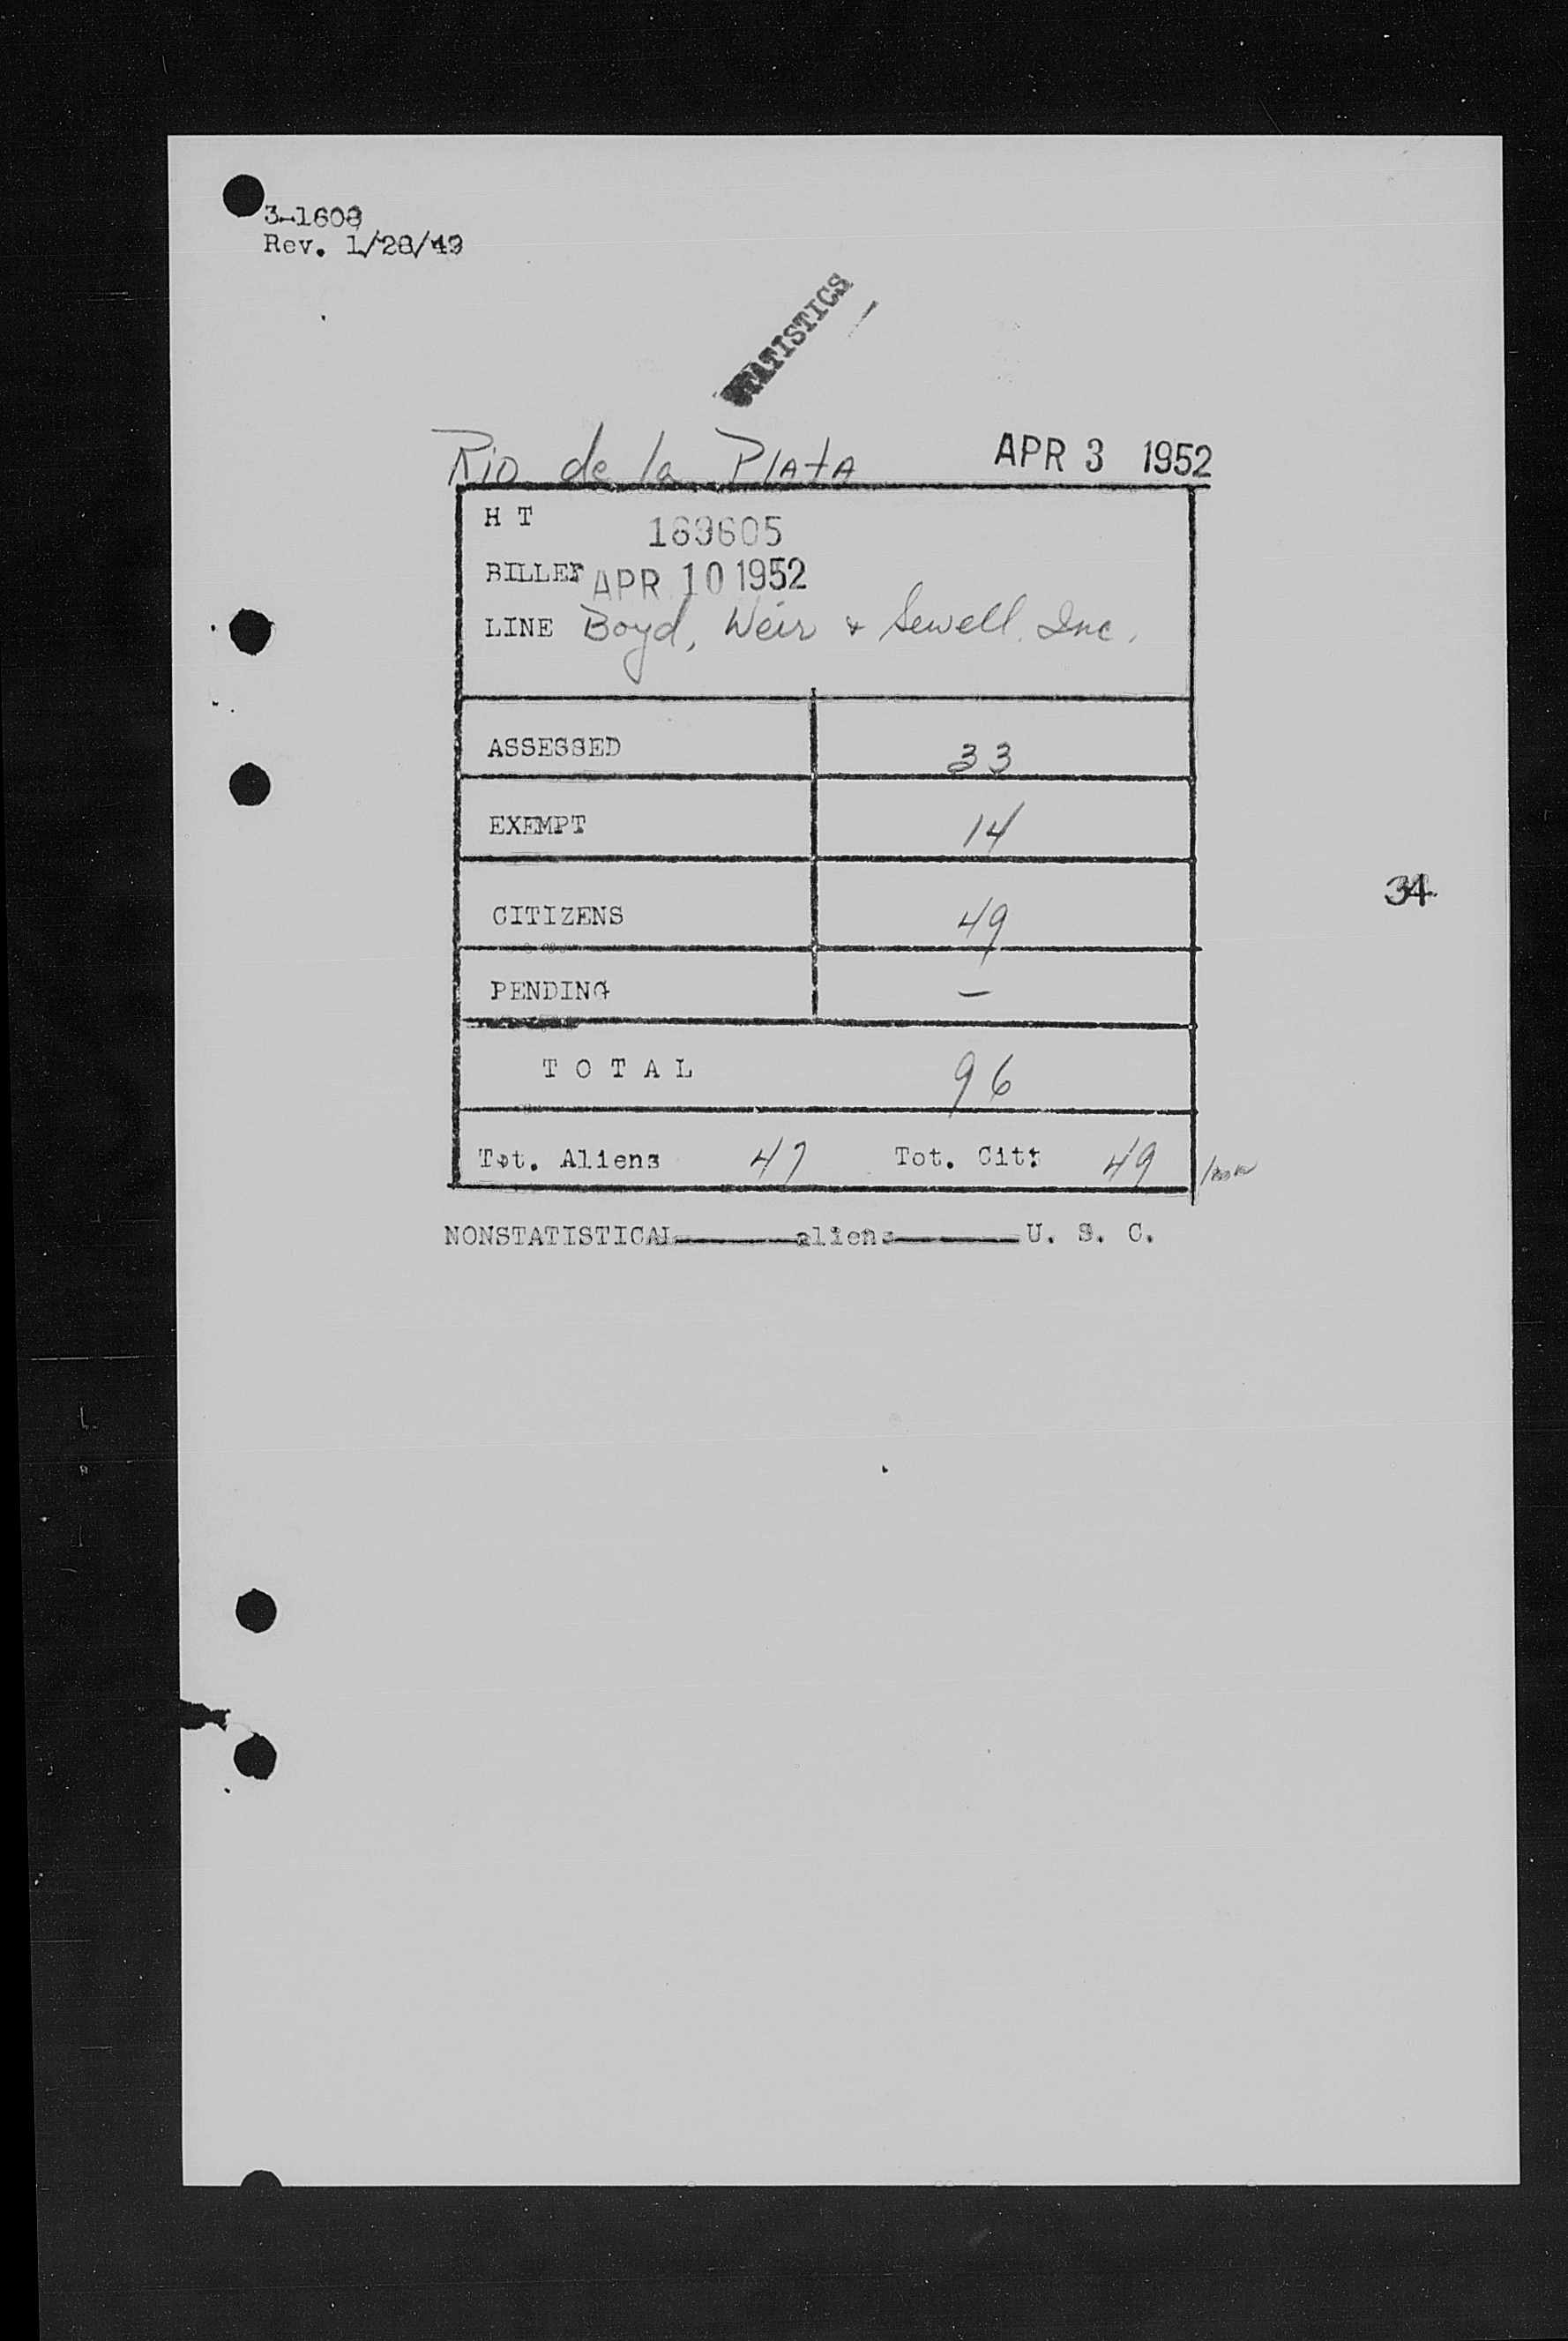 3-1608
Rev. 1/28/49
STATISTICS
Rio de la Plata APR 3 1952
H T 169605
BILLED APR 10 1952
LINE Boyd, Weir & Sewell, Inc.
ASSESSED 33
EXEMPT 14
34
CITIZENS 49
PENDING –
T O T A L 96
Tot. Aliens 47 Tot. Cit: 49
NONSTATISTICAL aliens U. S. C.